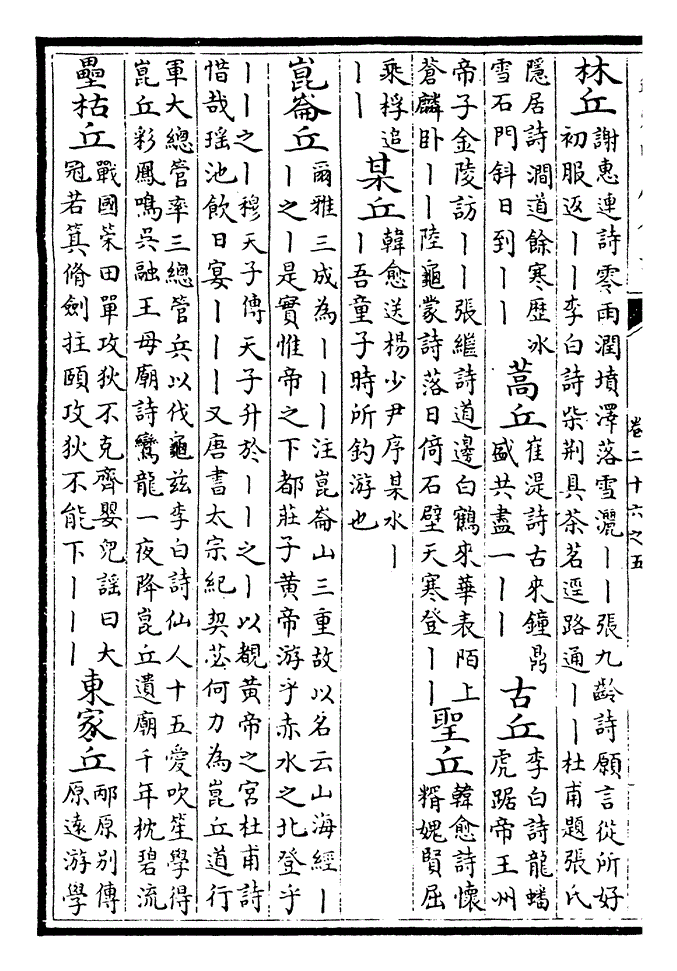 卷二十六之五
林丘謝惠連詩零雨潤墳澤落雪灑丨丨張九齡詩願言從所好
初服返丨丨李白詩柴荆具茶茗逕路通丨丨杜甫題張氏
隱居詩澗道餘寒歴冰
雪石門斜日到丨丨
蒿丘崔湜詩古來鐘鼎
盛共盡一丨丨
古丘李白詩龍蟠
虎踞帝王州
帝子金陵訪丨丨張繼詩道邊白鶴來華表陌上
蒼麟卧丨丨陸龜蒙詩落日倚石壁天寒登丨丨
聖丘韓愈詩懷
糈媿賢屈
乘桴追
丨丨
某丘韓愈送楊少尹序某水丨
丨吾童子時所釣游也
崑崙丘爾雅三成為丨丨丨注崑崙山三重故以名云山海經丨
丨之丨是實惟帝之下都莊子黄帝游乎赤水之北登乎
丨丨之丨穆天子傳天子升於丨丨之丨以觀黄帝之宮杜甫詩
惜哉瑶池飲日宴丨丨丨又唐書太宗紀契苾何力為崑丘道行
軍大總管率三總管兵以伐龜兹李白詩仙人十五愛吹笙學得
崑丘彩鳳鳴吳融王母廟詩鸞龍一夜降崑丘遺廟千年枕碧流
壘枯丘戰國策田單攻狄不克齊嬰兒謡曰大
冠若箕脩劍拄頤攻狄不能下丨丨丨
東家丘邴原别傳
原遠游學